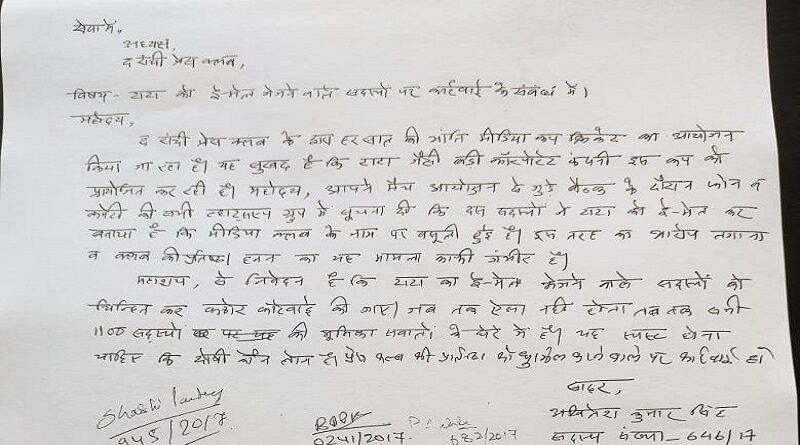 सेवा में,
अध्यक्ष,
द रांची प्रेस क्लब,
विषय - टाटा को ई-मेल भेजने वाले सदस्यों पर कार्रवाई के संबंध में।
महोदय,
द रांची प्रेस क्लब के द्वारा हर साल की भांति मीडिया कप क्रिकेट का आयोजन
किया जा रहा है। यह सुखद है कि टाटा जैसी बड़ी कॉरपोरेट कंपनी इस कप को
प्रायोजित कर रही है। महोदय, आपने मैच आयोजन से जुड़े बैठक के दौरान फोन व
कमेटी की बनी व्हाट्सएप ग्रुप में सूचना दी कि दस सदस्यों ने टाटा को ई-मेल कर
बताया है कि मीडिया क्लब के नाम पर वसूली हुई है। इस तरह का आरोप लगाना
व क्लब की प्रतिष्ठा हनन का यह मामला काफी गंभीर है।
महाशय, से निवेदन है कि टाटा का ई-मेल भेजने वाले सदस्यों को
चिन्हित कर कठोर कार्रवाई की जाए। जब तक ऐसा नहीं होता तब तक सभी
1100 सदस्यों की भूमिका सवालों के घेरे में है। यह स्पष्ट होना
चाहिए कि दोषी कौन लोग हैं। प्रेस क्लब की प्रतिष्ठा को धूमिल करने वाले पर कार्रवाई हो
सादर,
Shashi
945/2017
0241/2017
682/2017
अखिलेश कुमार सिंह
सदस्य संख्या - 646/17